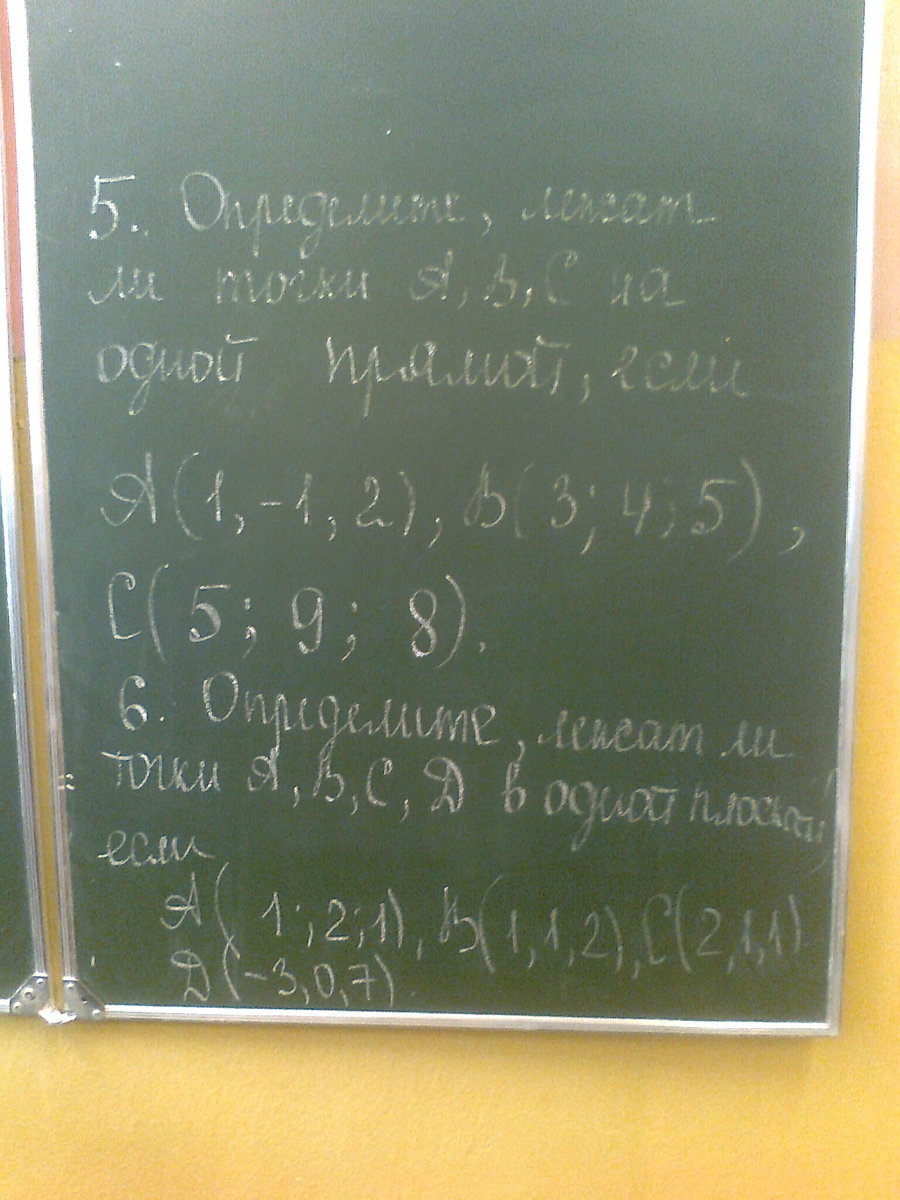 5. Определите, лежат
ли точки A, B, C на
одной прямой, если
A(1,-1,2), B(3;4;5),
C(5;9;8).
6. Определите, лежат ли
точки A, B, C, D в одной
если
A(1;2;1), B(1,1,2), C(2,1,1)
D(-3,0,7)